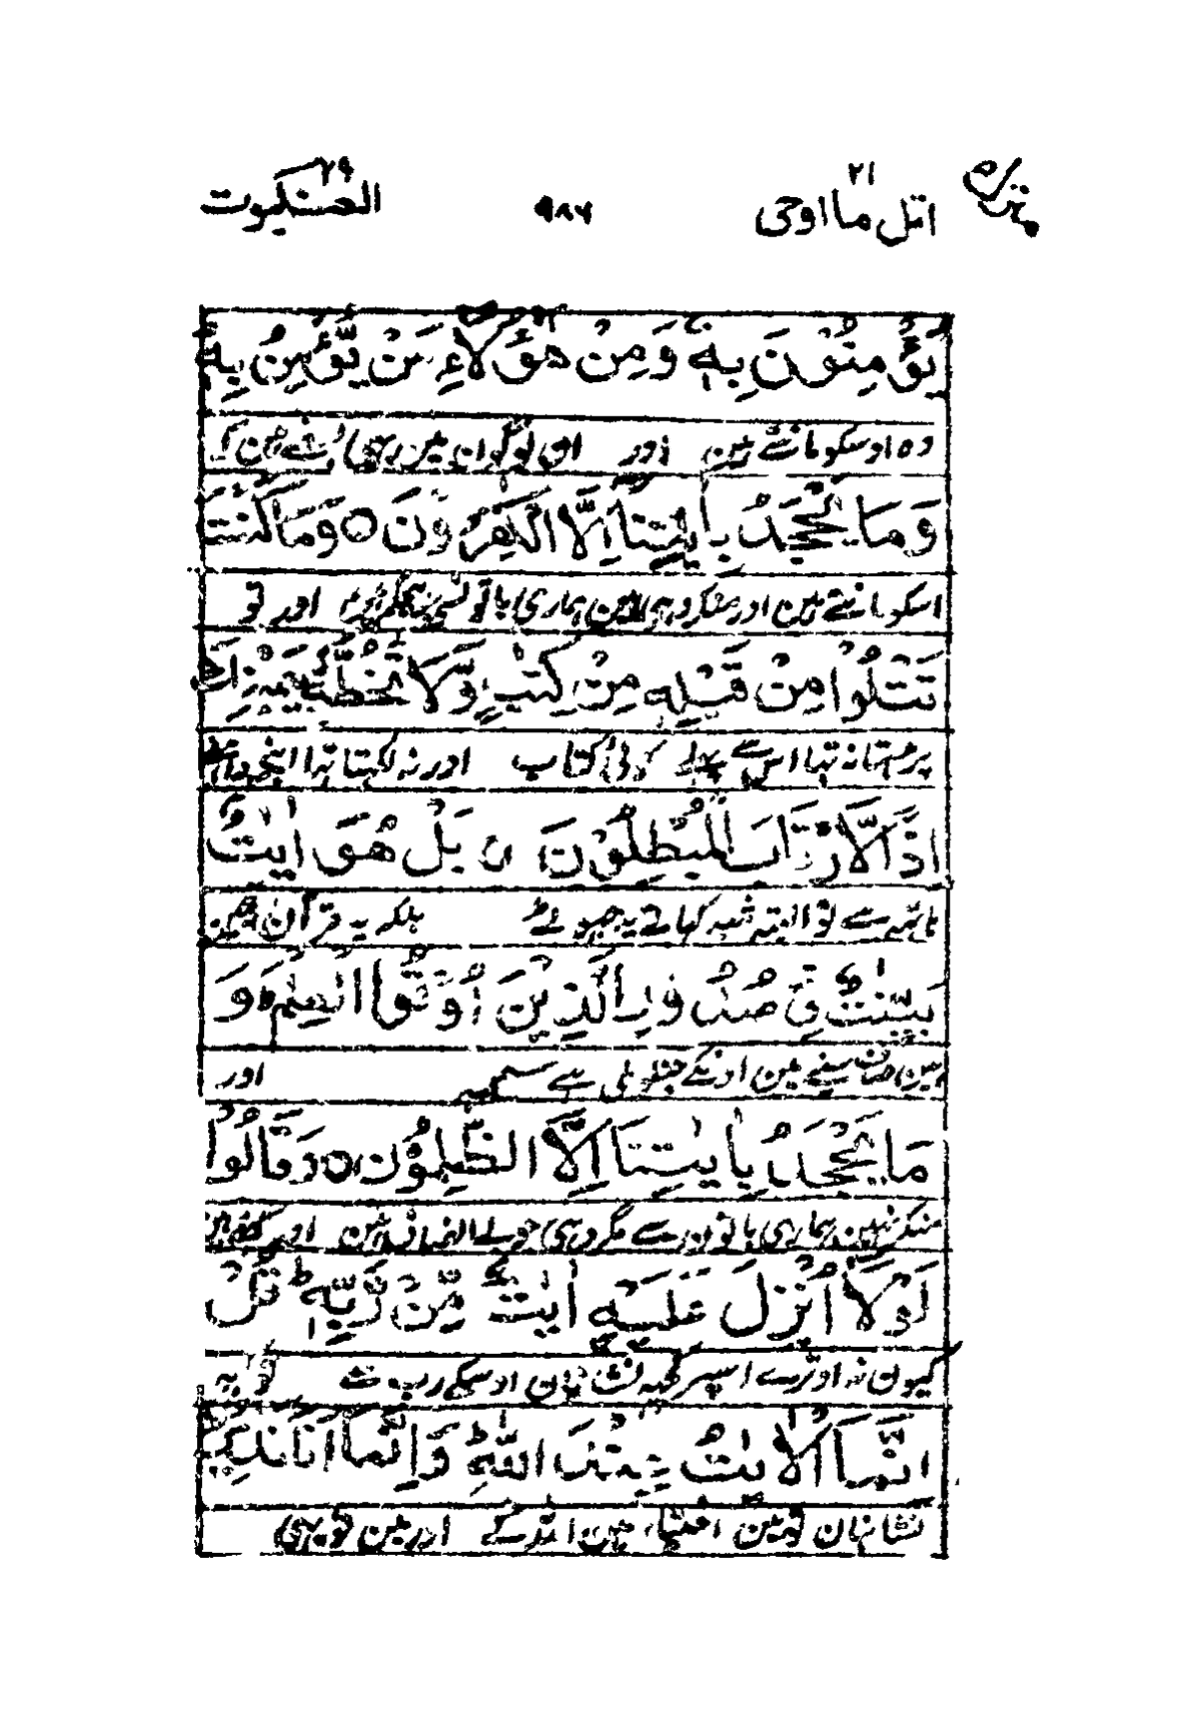 منزل ۵ اتل ما اوحی ۲۱ ۹۸۶ العنکبوت ۲۹
يُؤْمِنُوْنَ بِهٖ ۚ وَمِنْ هٰٓؤُلَآءِ مَنْ يُّؤْمِنُ بِهٖ ؕ
وہ اوسکو مانتے ہین اور ان لوگون مین بہی
وَمَا يَجْحَدُ بِاٰيٰتِنَاۤ اِلَّا الْكٰفِرُوْنَ ○ وَمَا كُنْتَ
اسکو مانتے ہین اور منکر وہی ہین ہماری باتونسی اور تو
تَتْلُوْا مِنْ قَبْلِهٖ مِنْ كِتٰبٍ وَّلَا تَخُطُّهٗ بِيَمِيْنِكَ
پڑہتا نہ تہا اس سے پہلے کوئی کتاب اور نہ لکہتا تہا اپنی داہنے
اِذًا لَّارْتَابَ الْمُبْطِلُوْنَ ○ بَلْ هُوَ اٰيٰتٌۢ
ہاتہہ سے تو البتہ شبہ کہاتے یہ جہوٹے بلکہ یہ قرآن
بَيِّنٰتٌ فِيْ صُدُوْرِ الَّذِيْنَ اُوْتُوا الْعِلْمَ ؕ وَ
ہین صاف سینے مین اونکے جنکو ملی ہے سمجہہ اور
مَا يَجْحَدُ بِاٰيٰتِنَاۤ اِلَّا الظّٰلِمُوْنَ ○ وَقَالُوْا
منکر نہین ہماری باتون سے مگر وہی جو بے انصاف ہین اور کہتے ہین
لَوْلَاۤ اُنْزِلَ عَلَيْهِ اٰيٰتٌ مِّنْ رَّبِّهٖ ؕ قُلْ
کیون نہ اوترے اسپر کچہہ نشانیان اوسکے رب سے تو کہہ
اِنَّمَا الْاٰيٰتُ عِنْدَ اللّٰهِ ؕ وَاِنَّمَاۤ اَنَا نَذِيْرٌ
نشانیان تو ہین اختیار مین اللہ کے اور مین تو یہی